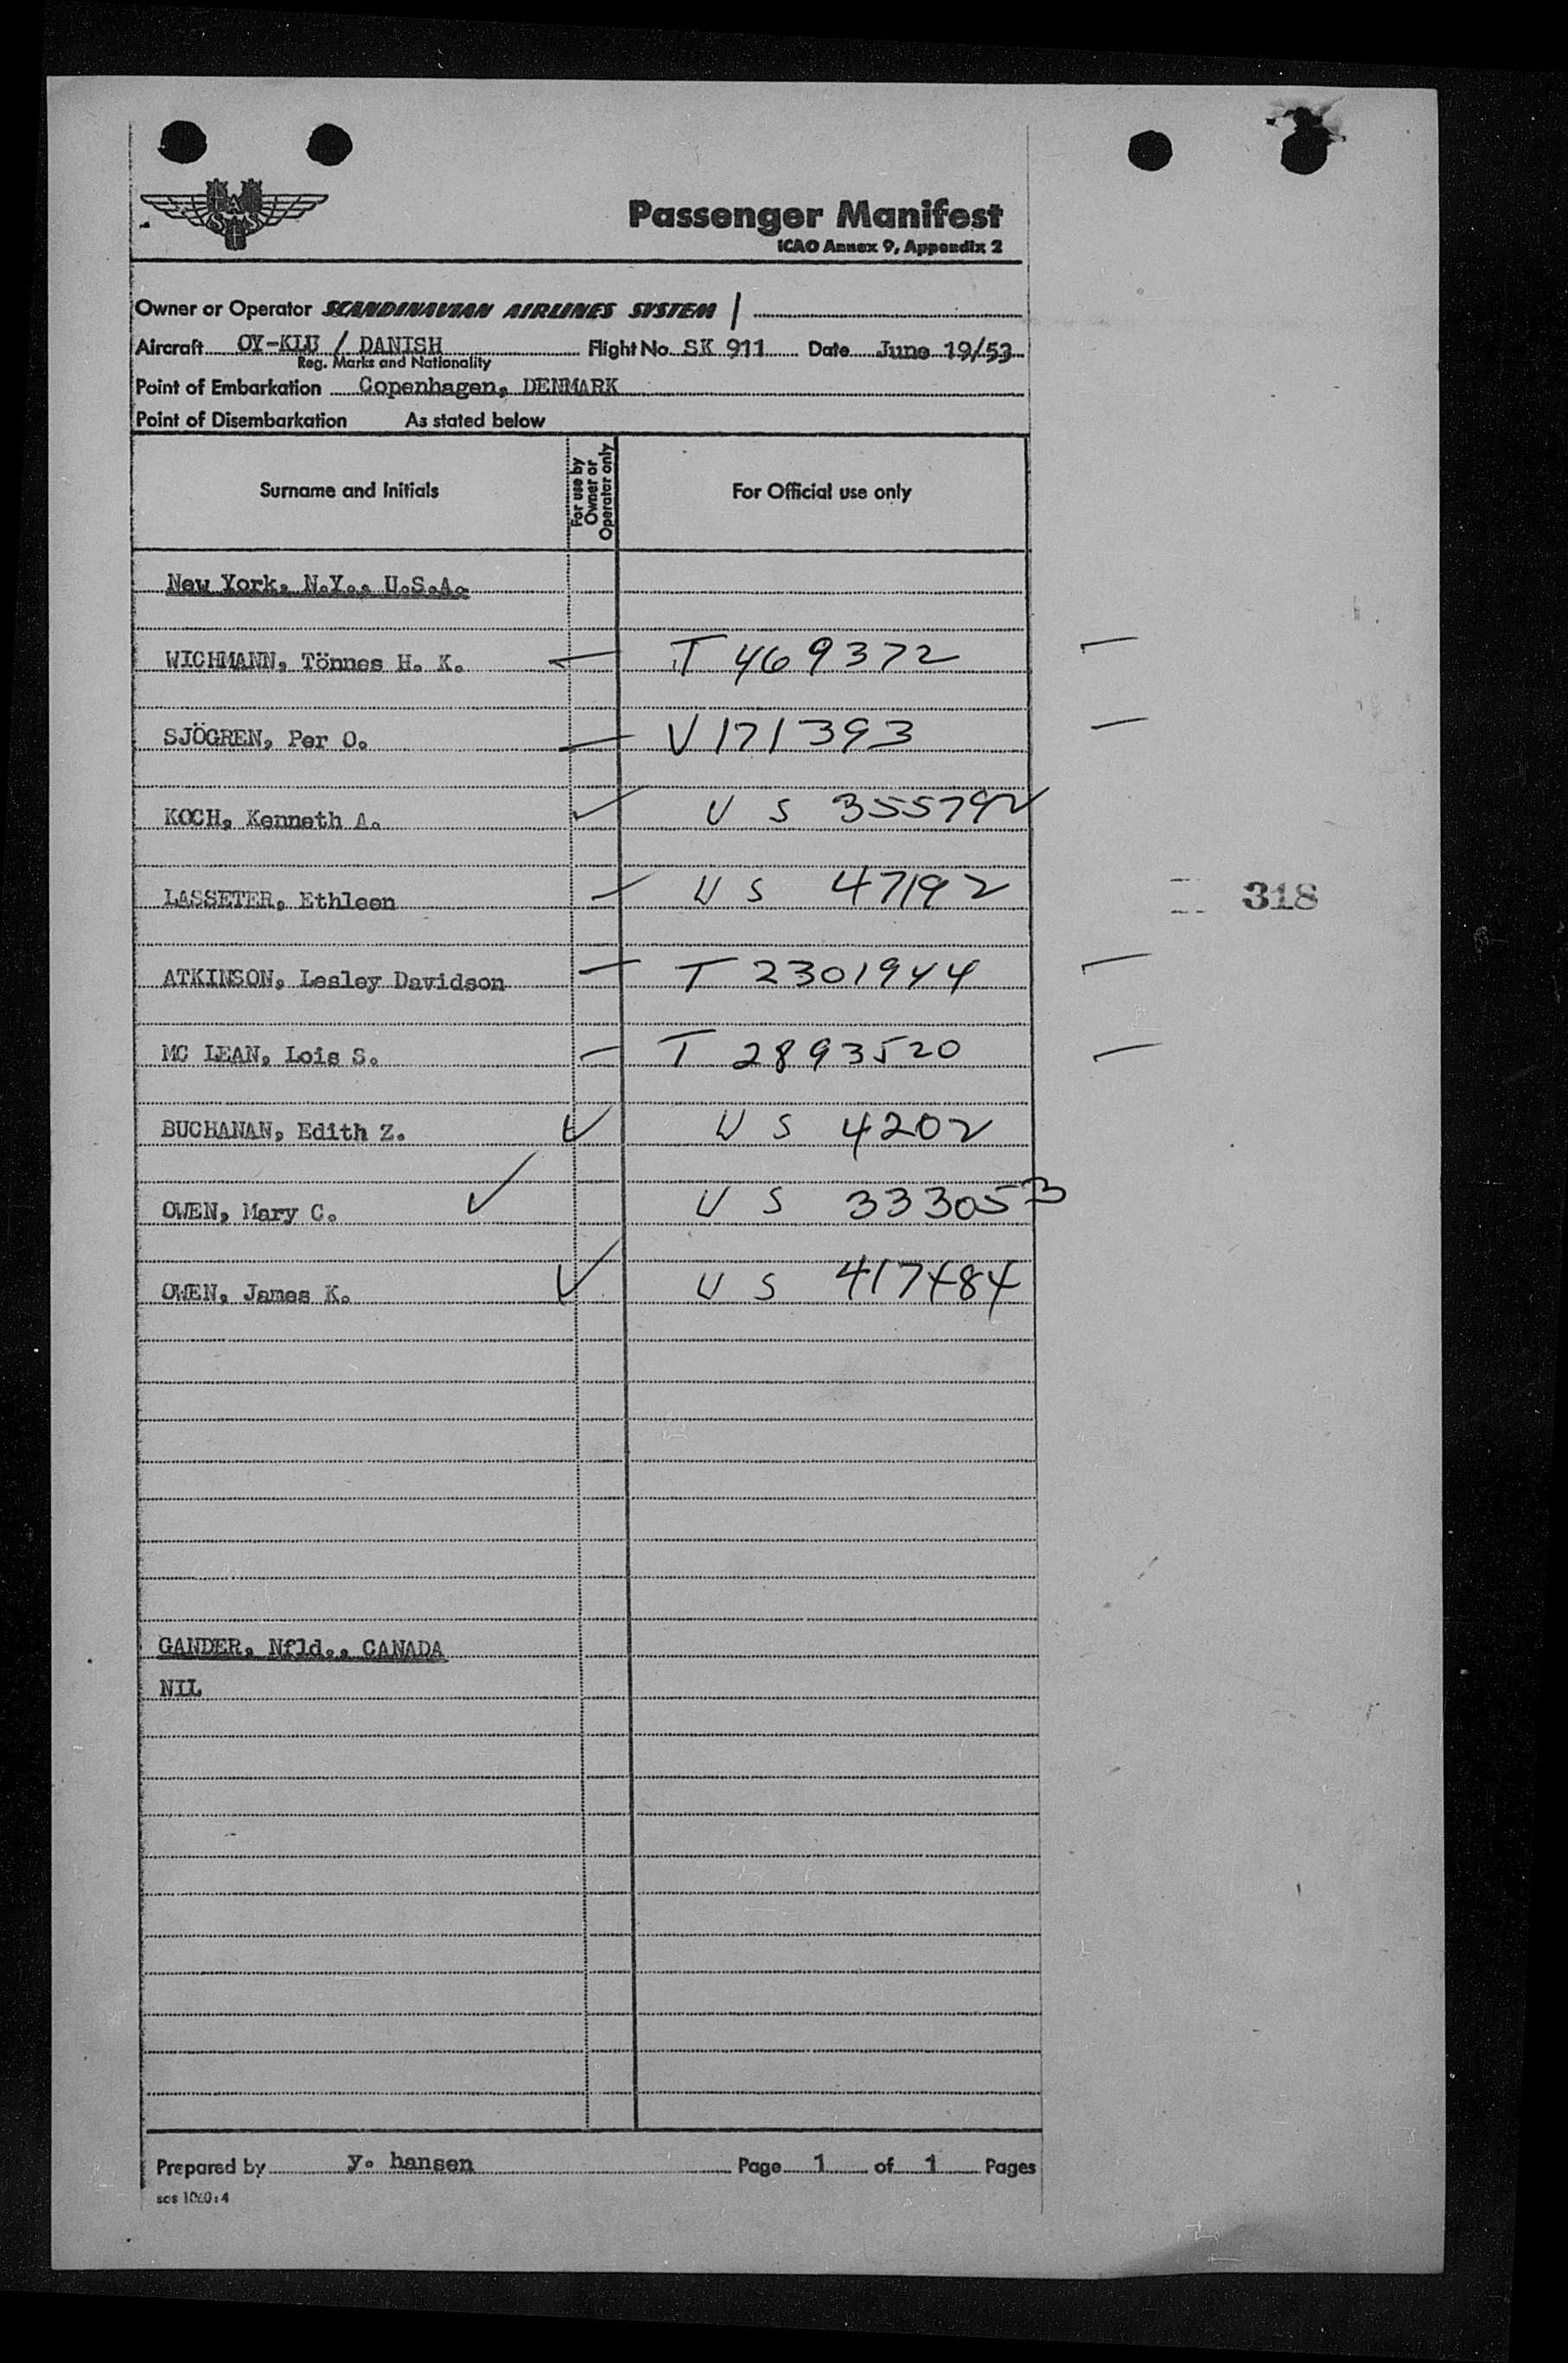 SAS
Passenger Manifest
ICAO Annex 9, Appendix 2
Owner or Operator SCANDINAVIAN AIRLINES SYSTEM /
Aircraft OY-KLU / DANISH Flight No. SK 911 Date June 19/53
Reg. Marks and Nationality
Point of Embarkation Copenhagen, DENMARK
Point of Disembarkation As stated below
Surname and Initials For use by Owner or Operator only For Official use only
New York, N.Y., U.S.A.
WICHMANN, Tönnes H. K. — T 469372 —
SJÖGREN, Per O. — V 171393 —
KOCH, Kenneth A. ✓ US 355792
LASSETER, Ethleen ✓ US 47192
318
ATKINSON, Lesley Davidson — T 2301944 —
MC LEAN, Lois S. — T 2893520 —
BUCHANAN, Edith Z. ✓ US 4202
OWEN, Mary C. ✓ US 333053
OWEN, James K. ✓ US 417484
GANDER, Nfld., CANADA
NIL
Prepared by y. hansen Page 1 of 1 Pages
sas 1060:4